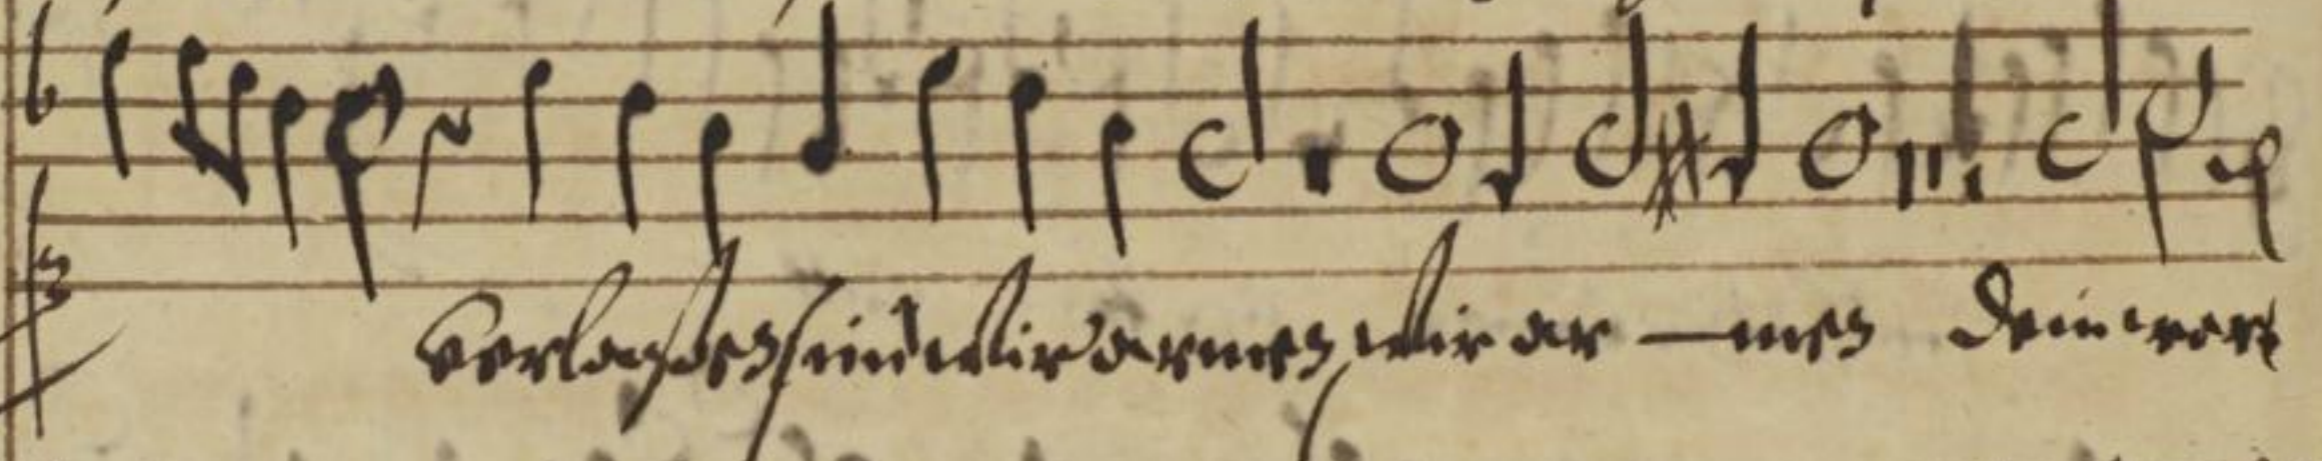 verlassen sind wir armen wir ar - men dein wort